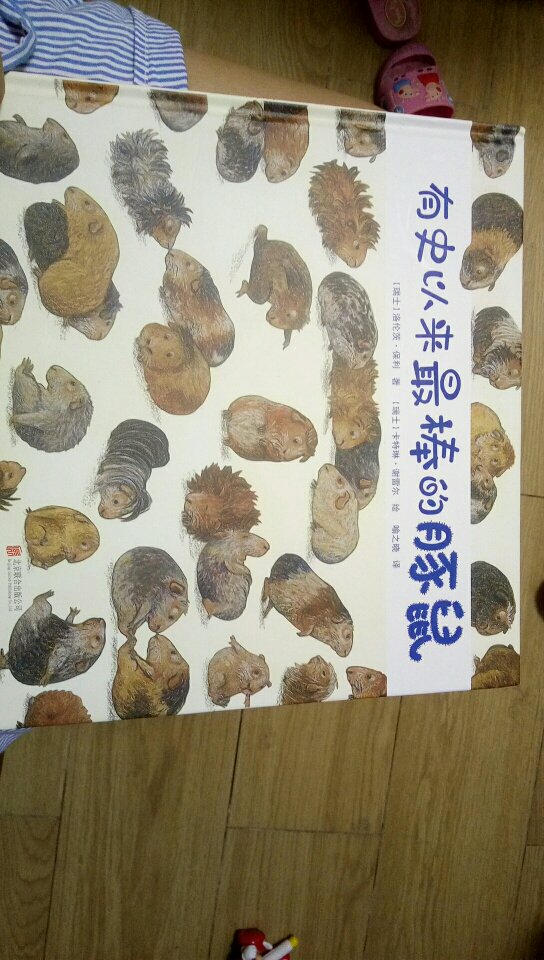 有史以来最棒的豚鼠
[瑞士]洛伦茨·保利 著 [瑞士]卡特琳·谢雷尔 绘 喻之晓 译
北京联合出版公司